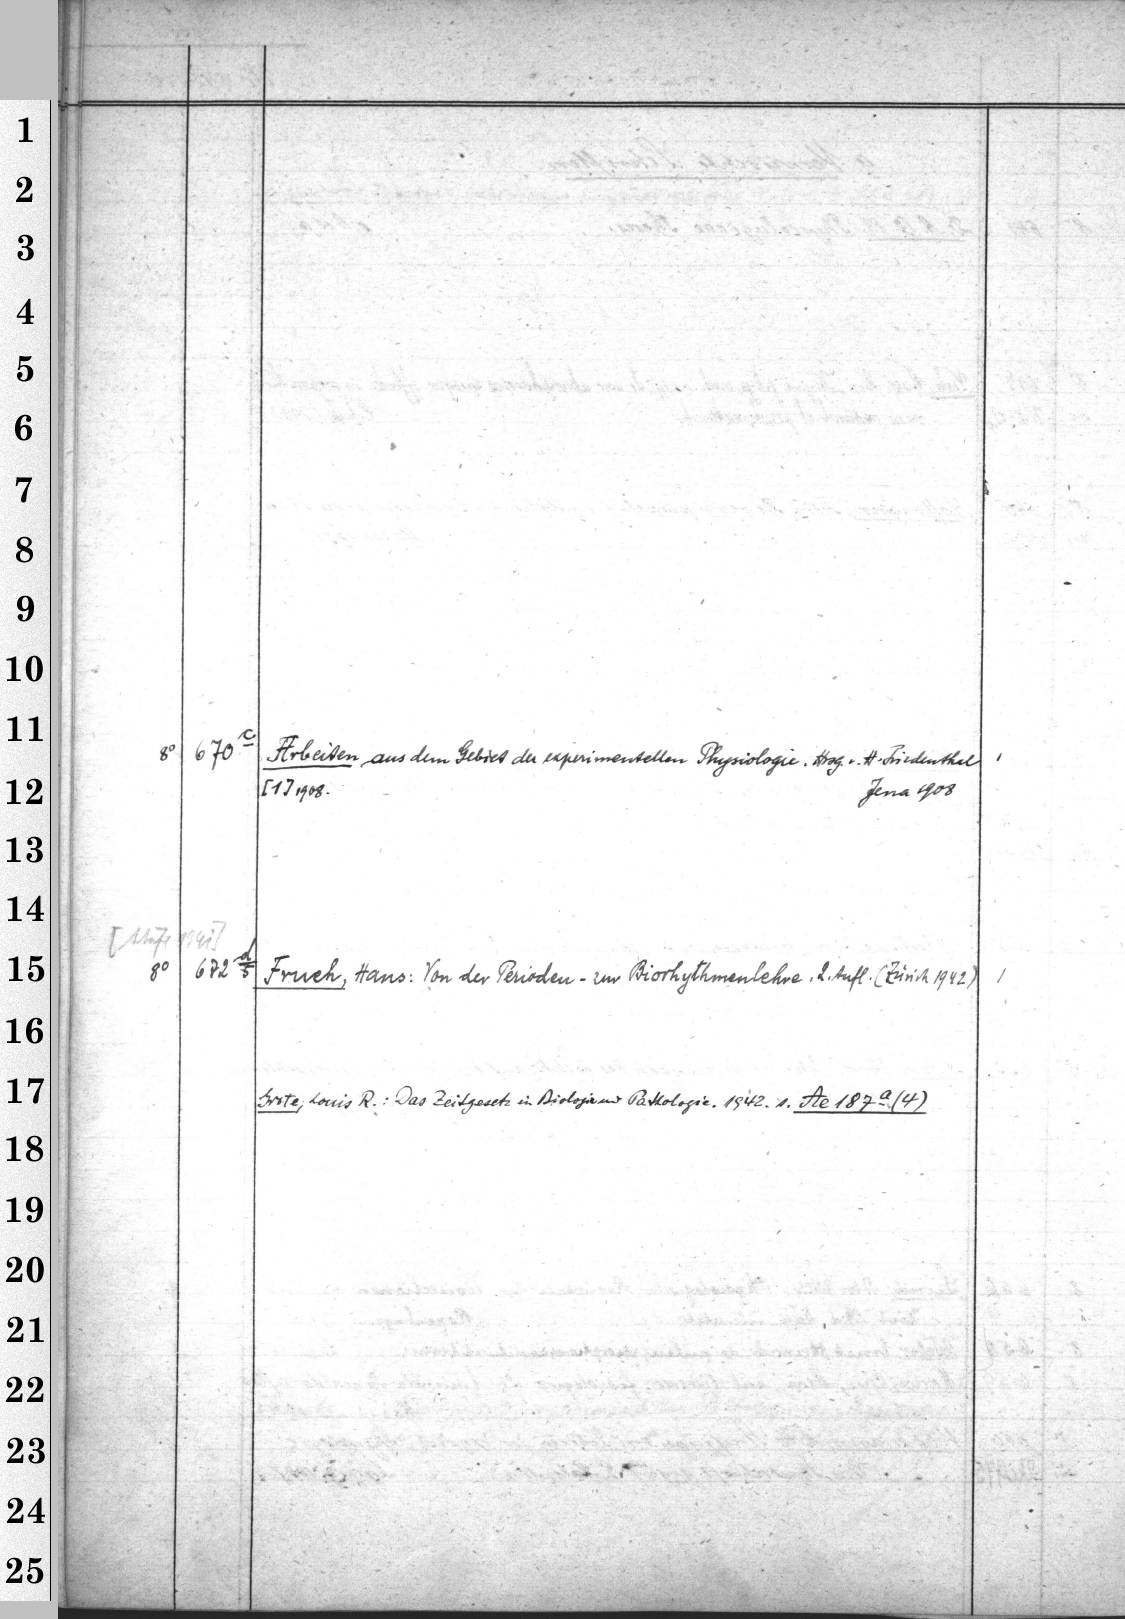 1
2
3
4
5
6
7
8
9
10
11
8° 670 c Arbeiten aus dem Gebiet der experimentellen Physiologie. Hrsg. v. H. Friedenthal 1
12
[1] 1908. Jena 1908
13
14
1941]
15
8° 672 d/5 Frueh, Hans: Von der Perioden- zur Biorhythmenlehre. 2. Aufl. (Zürich 1942) 1
16
17
Grote, Louis R.: Das Zeitgesetz in Biologie und Pathologie. 1942. s. Ae 187 a (4)
18
19
20
21
22
23
24
25